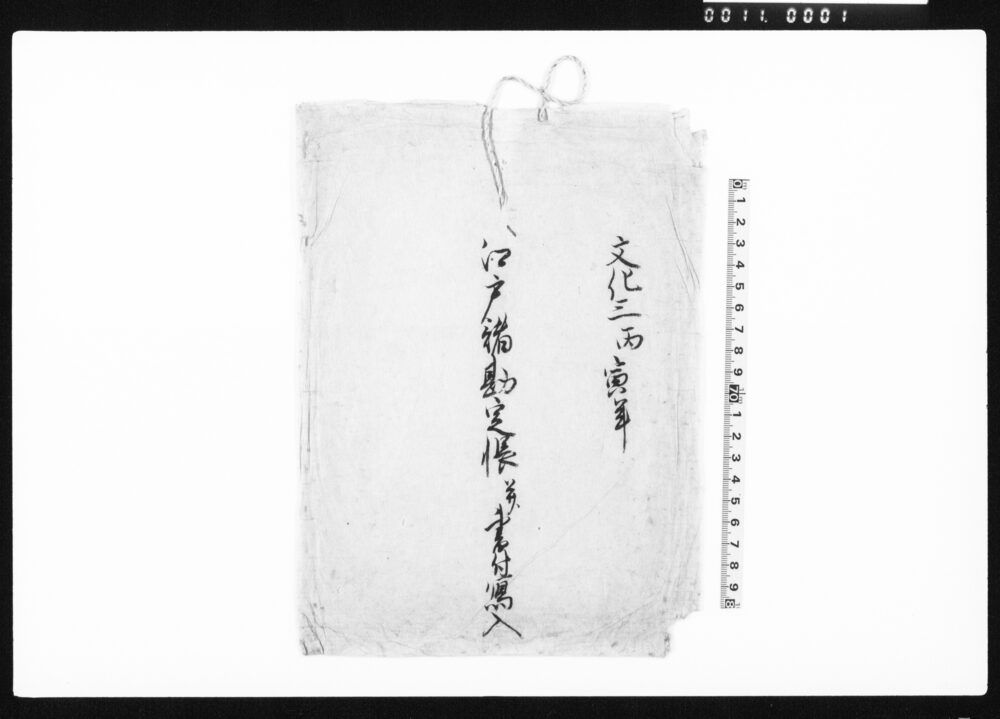 0011. 0001
文化三丙寅年
江戸諸勘定帳并書付写入
0 1 2 3 4 5 6 7 8 9 70 1 2 3 4 5 6 7 8 9 8